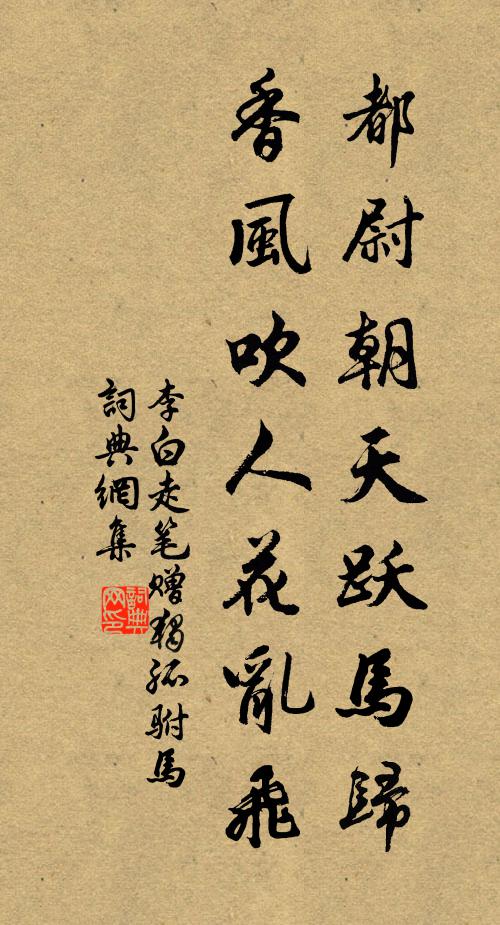 都尉朝天跃馬歸
香風吹人花亂飛
李白走笔赠独孤駙馬
詞典網集
詞典網印